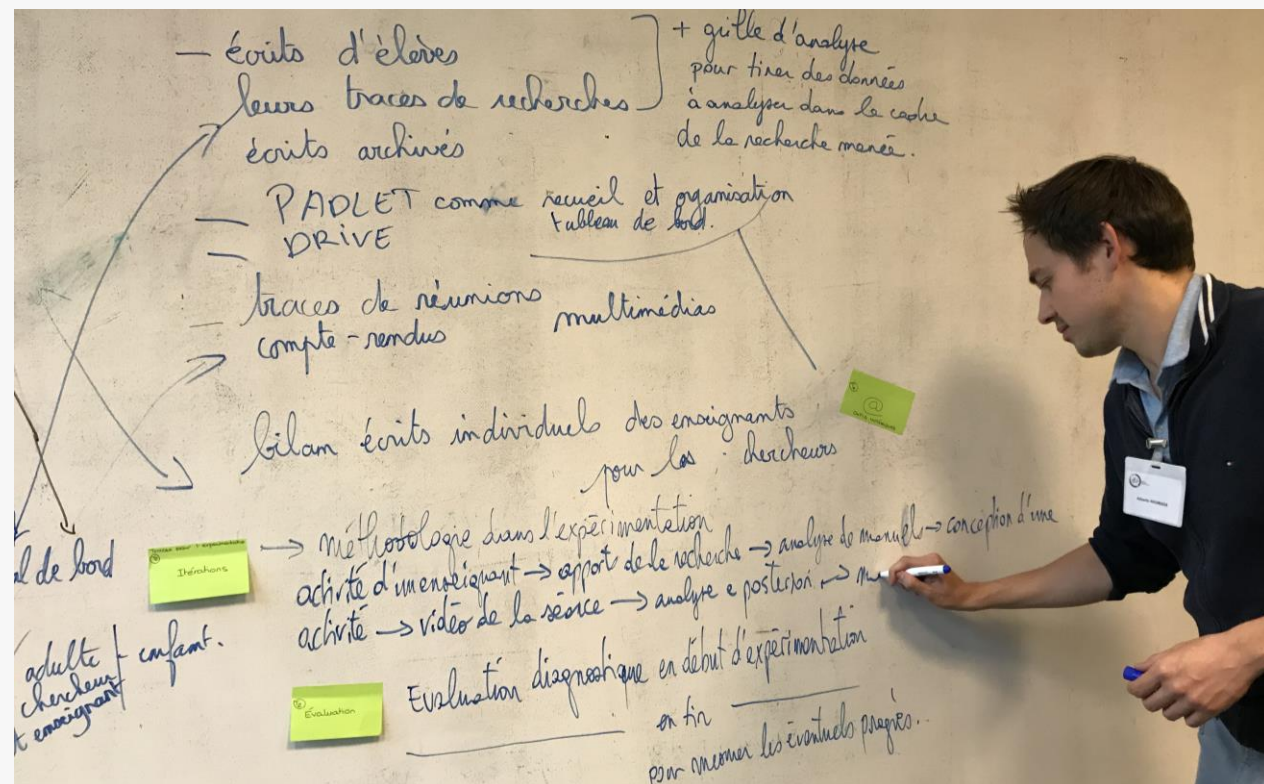 — écrits d'élèves
leurs traces de recherches
écrits archivés
+ grille d'analyse
pour tirer des données
à analyser dans le cadre
de la recherche menée.
— PADLET comme recueil et organisation
tableau de bord.
— DRIVE
— traces de réunions
compte-rendus
multimédias
bilan écrits individuels des enseignants
pour les chercheurs
@
al de bord
Itérations
→ méthodologie dans l'expérimentation
activité d'un enseignant → apport de la recherche → analyse de manuels → conception d'une
activité → vidéo de la séance → analyse a posteriori →
adulte enfant.
chercheur
enseignant
Évaluation
Evaluation diagnostique en début d'expérimentation
en fin
pour mesurer les éventuels progrès..